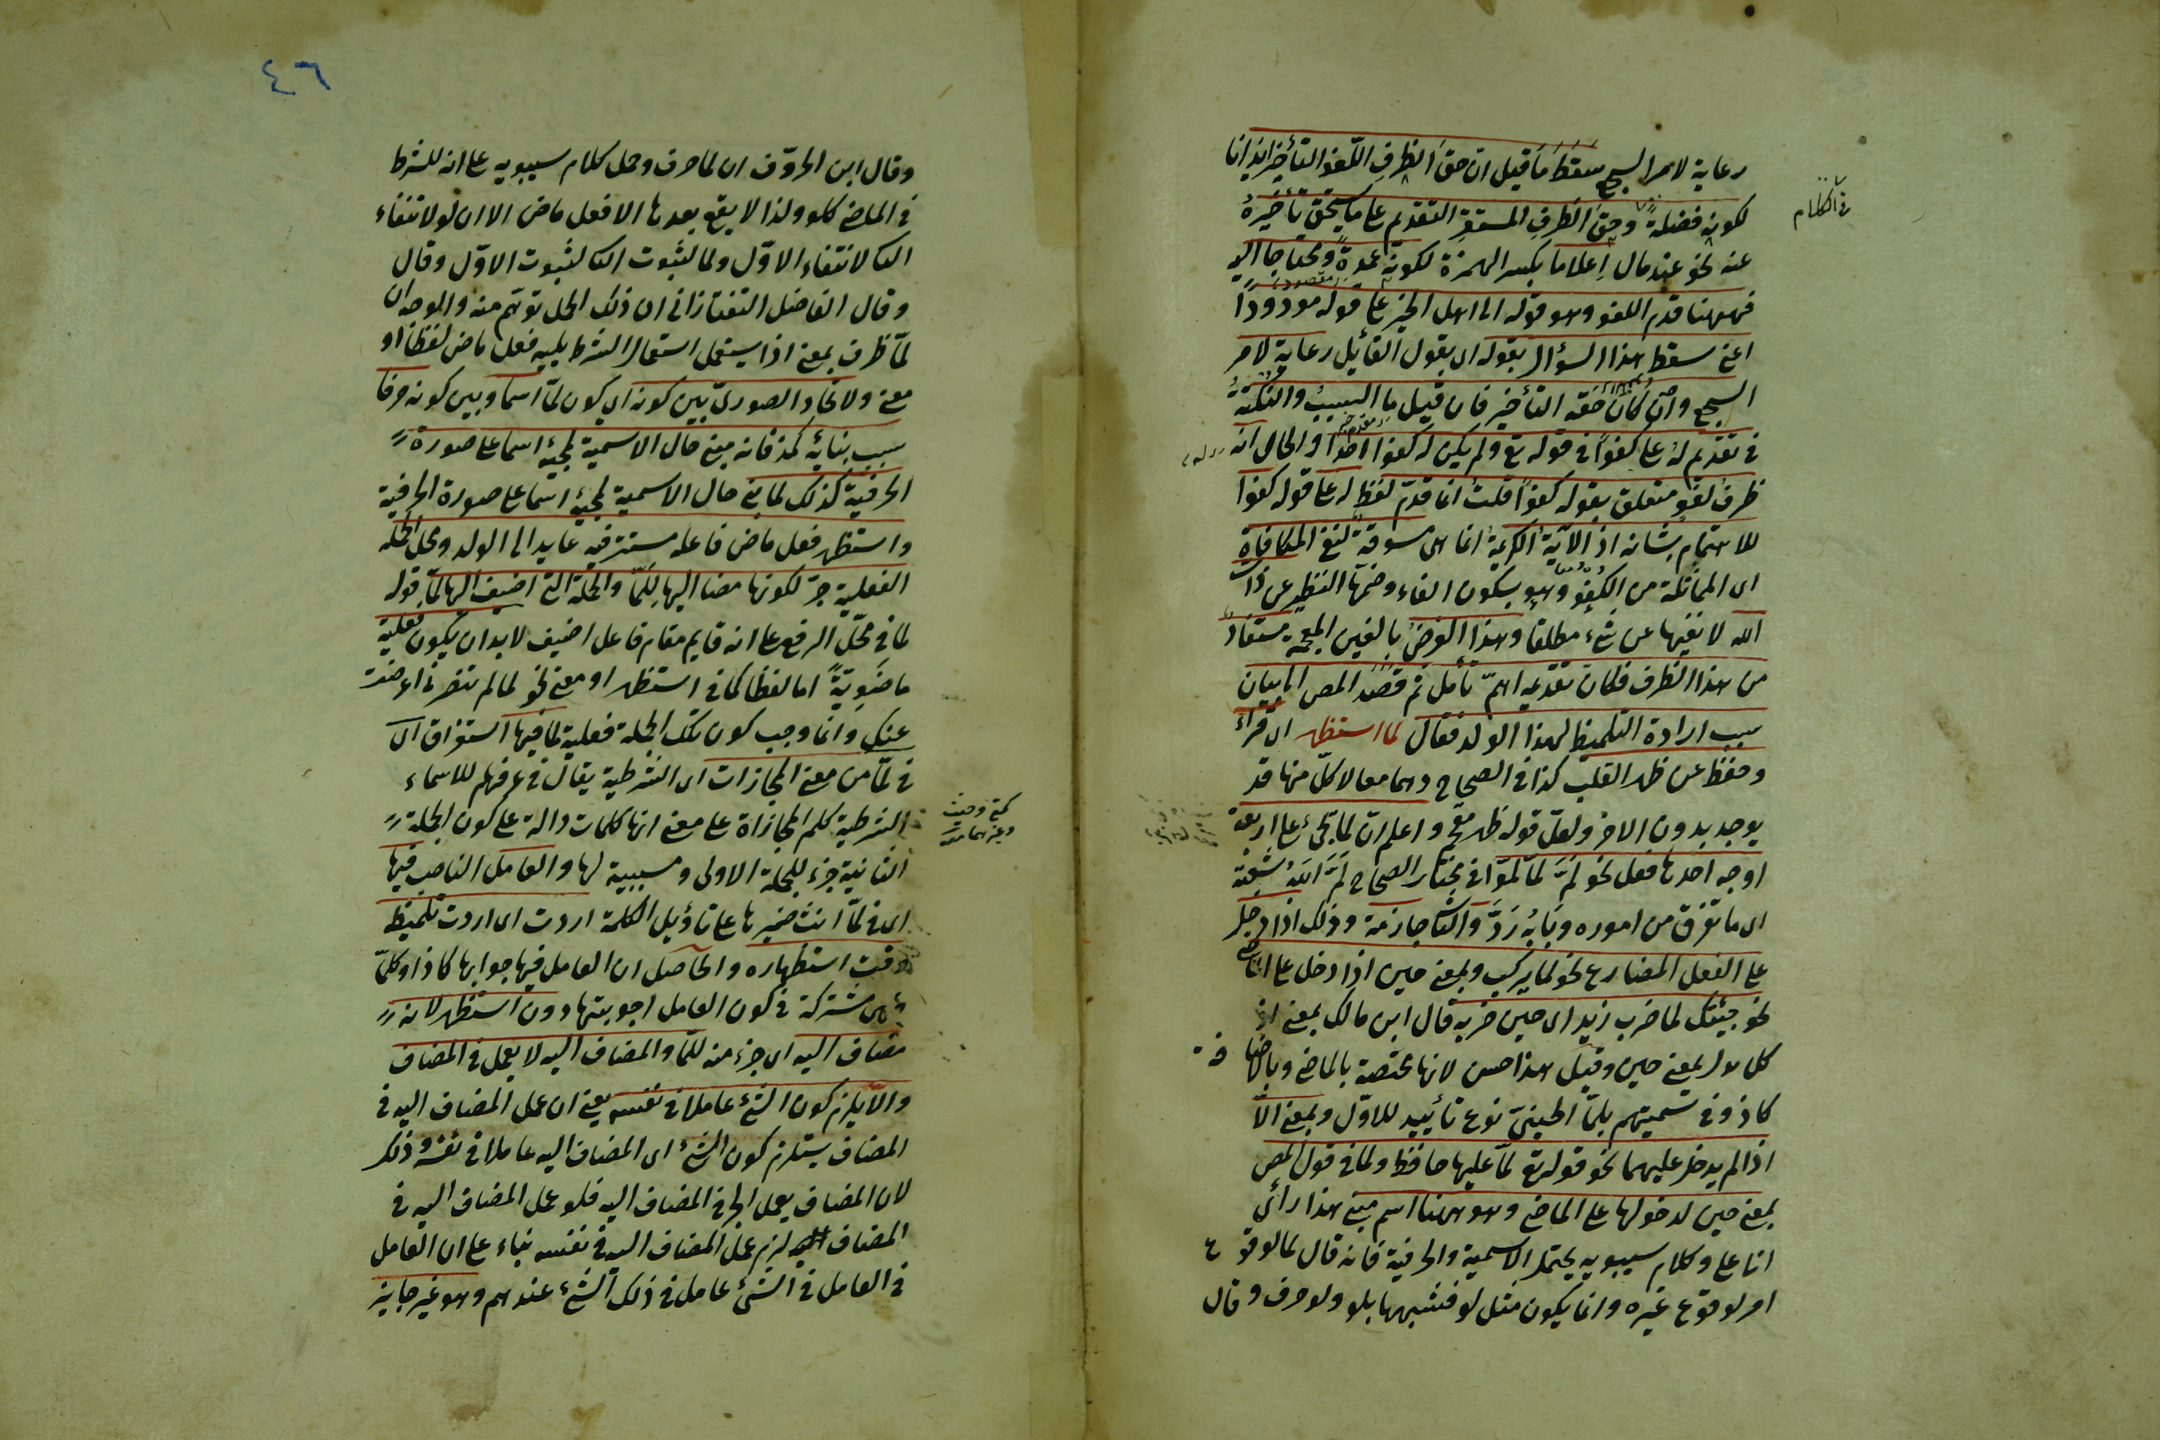 رعاية لامر السجع سقط ما قيل ان حق الظرف اللغو التأخير ايذانا
لكونه فضلة وحق الظرف المستقر التقديم على ما يستحق تأخيره
عنه نحو عند مال اعلاما بكسر الهمزة لكونه عمدة ومحتاجا اليه
فههنا قدم اللغو وهو قوله الى اهل الخير على قوله مودودا
اعنى سقط هذا السؤال بقوله اى بقول القائل رعاية لامر
السجع وان كان حقه التأخير فان قيل ما السبب والنكتة
فى تقديم له على كفوا فى قوله تع ولم يكن له كفوا احد والحال انه
ظرف لغو متعلق بقوله كفوا قلت انما قدم لفظ له على قوله كفوا
للاهتمام بشانه اذ الآية الكريمة انما هى مسوقة لنفى المكافاة
اى المماثلة من الكفو وهو بسكون الفاء وضمها النظير عن ذات
الله لا نفيها عن شىء مطلقا وهذا الغرض بالغين المعجمة مستفاد
من هذا الظرف فكان تقديمه اهم تأمل ثم قصد المص الى بيان
سبب ارادة التلميظ لهذا الولد فقال لما استظهر اى قراء
وحفظ عن ظهر القلب كذا فى الصحاح وهما معا لا كل منهما قد
يوجد بدون الاخر ولعل قوله ظهر مقحم واعلم ان لما تجئ على اربعة
اوجه احدها فعل نحو لمّ لمّا لمّوا فى مختار الصحاح لمّ الله شعثه
اى ما تفرق من اموره وبابه ردّ والثا جازمة وذلك اذا دخل
على الفعل المضارع نحو لما يركب وبمعنى حين اذا دخل على الماضى
نحو جئتك لما ضرب زيد اى حين ضربه قال ابن مالك بمعنى اذ
كل بمعنى حين وقيل هذا حسن لانها مختصة بالماضى وبالاضافة
كاذ وفى تسميتهم بلمّا الحينى نوع تأييد للاول وبمعنى الّا
اذا لم يدخل عليهما نحو قوله تع لمّا عليها حافظ ولما فى قول المص
بمعنى حين لدخولها على الماضى وهو ههنا اسم مبنى هذا رأى
ابا على وكلام سيبويه يحتمل الاسمية والحرفية فانه قال لما لوقوع
امر لوقوع غيره وانما يكون مثل لو فشبهها بلو ولو حرف وقال
فى الكلام
٤٦
وقال ابن الخروف ان لما حرف وحمل كلام سيبويه على انه للشرط
فى الماضى كلو ولذا لا يقع بعدها الا فعل ماض الا ان لو لانتفاء
الثا لانتفاء الاول ولما لثبوت الثا لثبوت الاول وقال
وقال الفاضل التفتازانى ان ذلك الحمل توهم منه والوجه ان
لمّا ظرف بمعنى اذا يستعمل استعمال الشرط يليه فعل ماض لفظا او
معنى ولاتحاد الصورى بين كونه اى كون لمّا اسما وبين كونه حرفا
سبب بنائه كمذ فانه مبنى حال الاسمية لمجيئه اسما على صورة
الحرفية كذلك لما بنى حال الاسمية لمجيئه اسما على صورة الحرفية
واستظهر فعل ماض فاعله مستتر فيه عايد الى الولد ومحل الجملة
الفعلية جر لكونها مضا اليها للمّا والجملة التى اضيف اليها لمّا قوله
لما فى محل الرفع على انه قايم مقام فاعل اضيف لا بد ان يكون فعلية
ماضوية اما لفظا كما فى استظهر او معنى نحو لما لم تنصرنى اعرضت
عنك وانما وجب كون تلك الجملة فعلية لما فيها استقراق اى
فى لمّا من معنى المجازات اى الشرطية يقال فى عرفهم للاسماء
الشرطية كلم المجازاة على معنى انها كلمات دالة على كون الجملة
الثانية جزاء للجملة الاولى ومسببية لها والعامل الناصب فيها
اى فى لمّا انث ضميرها على تاؤيل الكلمة اردت اى اردت تلميظ
وقت استظهاره والحاصل ان العامل فيها جوابها كاذا وكلمّا
هى مشتركة فى كون العامل اجوبتها دون استظهر لانه
مضاف اليه اى جزء منه للمّا والمضاف اليه لا يعمل فى المضاف
والا يلزم كون الشئ عاملا فى نفسه يعنى ان عمل المضاف اليه فى
المضاف يستلزم كون الشئ اى المضاف اليه عاملا فى نفسه وذلك
لان المضاف يعمل الجر فى المضاف اليه فلو عمل المضاف اليه فى
المضاف لزم عمل المضاف اليه فى نفسه بناء على ان العامل
فى العامل فى الشئ عامل فى ذلك الشئ عندهم وهو غير جايز